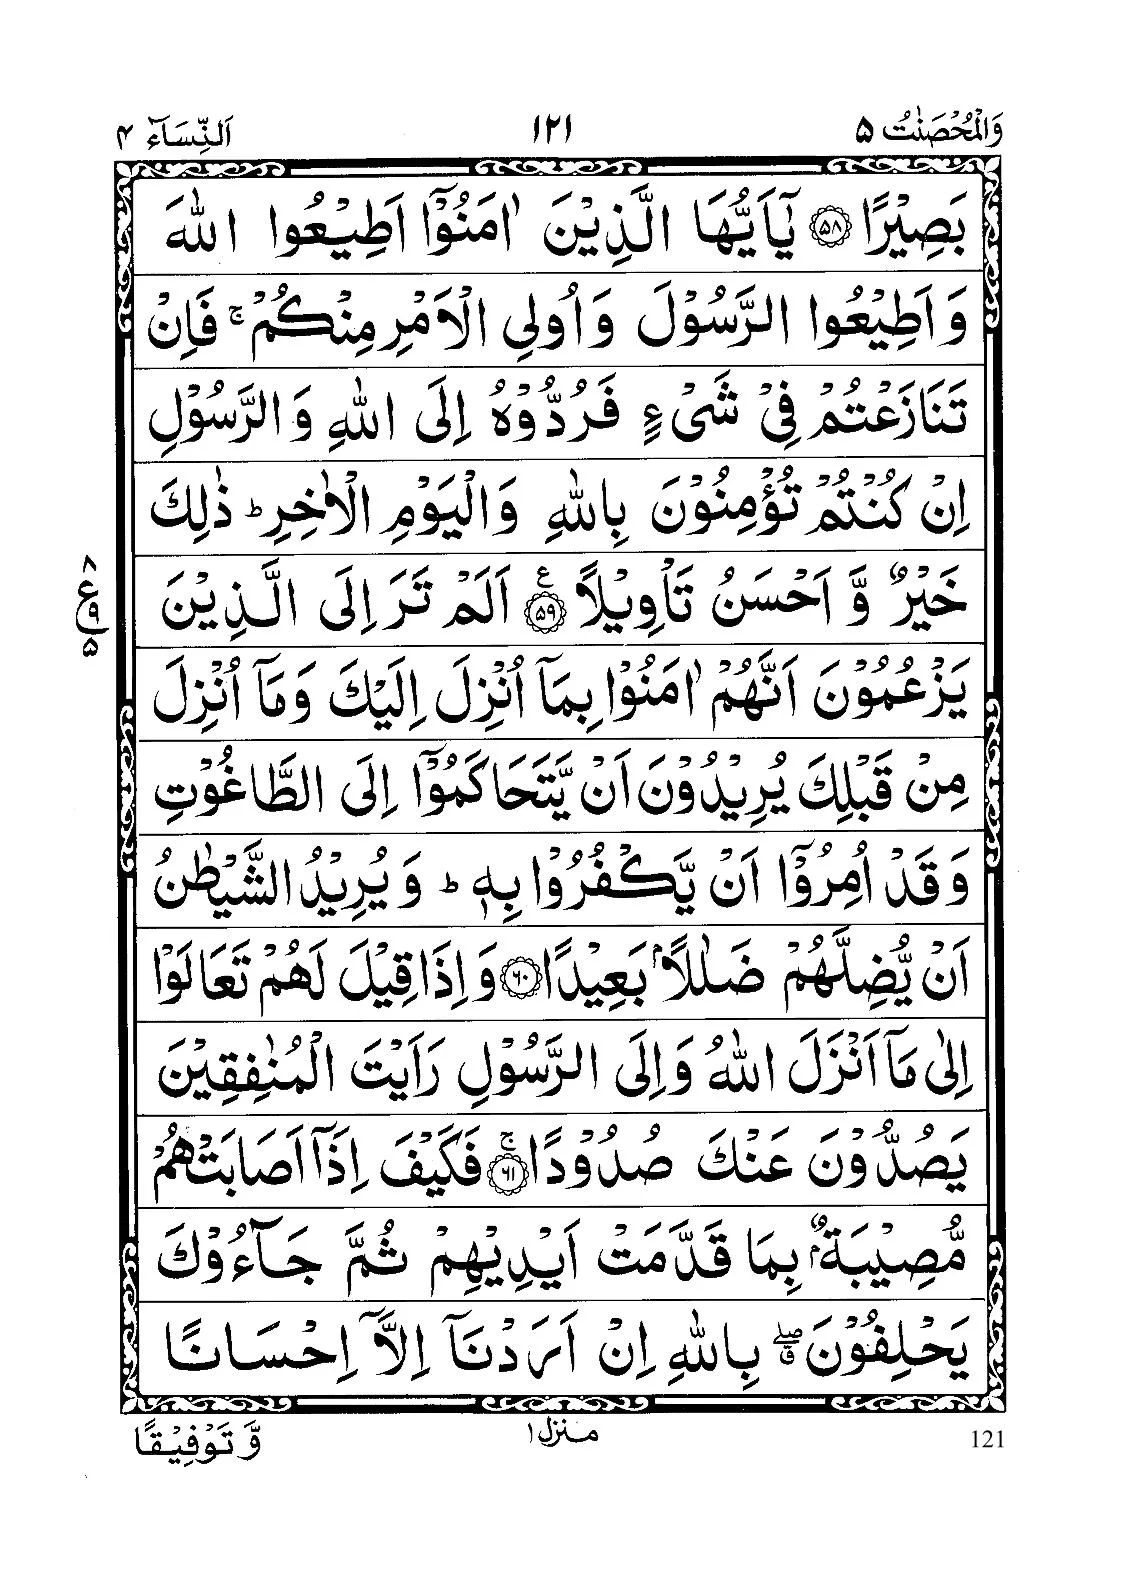 وَالْمُحْصَنٰتُ ۵ ۱۲۱ اَلنِّسَآء ۴
بَصِيْرًا ﴿۵۸﴾ يٰۤاَيُّهَا الَّذِيْنَ اٰمَنُوْۤا اَطِيْعُوا اللّٰهَ
وَاَطِيْعُوا الرَّسُوْلَ وَاُولِي الْاَمْرِ مِنْكُمْ ۚ فَاِنْ
تَنَازَعْتُمْ فِيْ شَيْءٍ فَرُدُّوْهُ اِلَى اللّٰهِ وَالرَّسُوْلِ
اِنْ كُنْتُمْ تُؤْمِنُوْنَ بِاللّٰهِ وَالْيَوْمِ الْاٰخِرِ ؕ ذٰلِكَ
خَيْرٌ وَّاَحْسَنُ تَاْوِيْلًا ﴿۵۹﴾ ع اَلَمْ تَرَ اِلَى الَّذِيْنَ
۸ ع ۹ ۵
يَزْعُمُوْنَ اَنَّهُمْ اٰمَنُوْا بِمَاۤ اُنْزِلَ اِلَيْكَ وَمَاۤ اُنْزِلَ
مِنْ قَبْلِكَ يُرِيْدُوْنَ اَنْ يَّتَحَاكَمُوْۤا اِلَى الطَّاغُوْتِ
وَقَدْ اُمِرُوْۤا اَنْ يَّكْفُرُوْا بِهٖ ؕ وَيُرِيْدُ الشَّيْطٰنُ
اَنْ يُّضِلَّهُمْ ضَلٰلًاۢ بَعِيْدًا ﴿۶۰﴾ وَاِذَا قِيْلَ لَهُمْ تَعَالَوْا
اِلٰى مَاۤ اَنْزَلَ اللّٰهُ وَاِلَى الرَّسُوْلِ رَاَيْتَ الْمُنٰفِقِيْنَ
يَصُدُّوْنَ عَنْكَ صُدُوْدًا ﴿۶۱﴾ ۚ فَكَيْفَ اِذَاۤ اَصَابَتْهُمْ
مُّصِيْبَةٌۢ بِمَا قَدَّمَتْ اَيْدِيْهِمْ ثُمَّ جَآءُوْكَ
يَحْلِفُوْنَ ۖۗ بِاللّٰهِ اِنْ اَرَدْنَاۤ اِلَّاۤ اِحْسَانًا
121 منزل ۱ وَّتَوْفِيْقًا